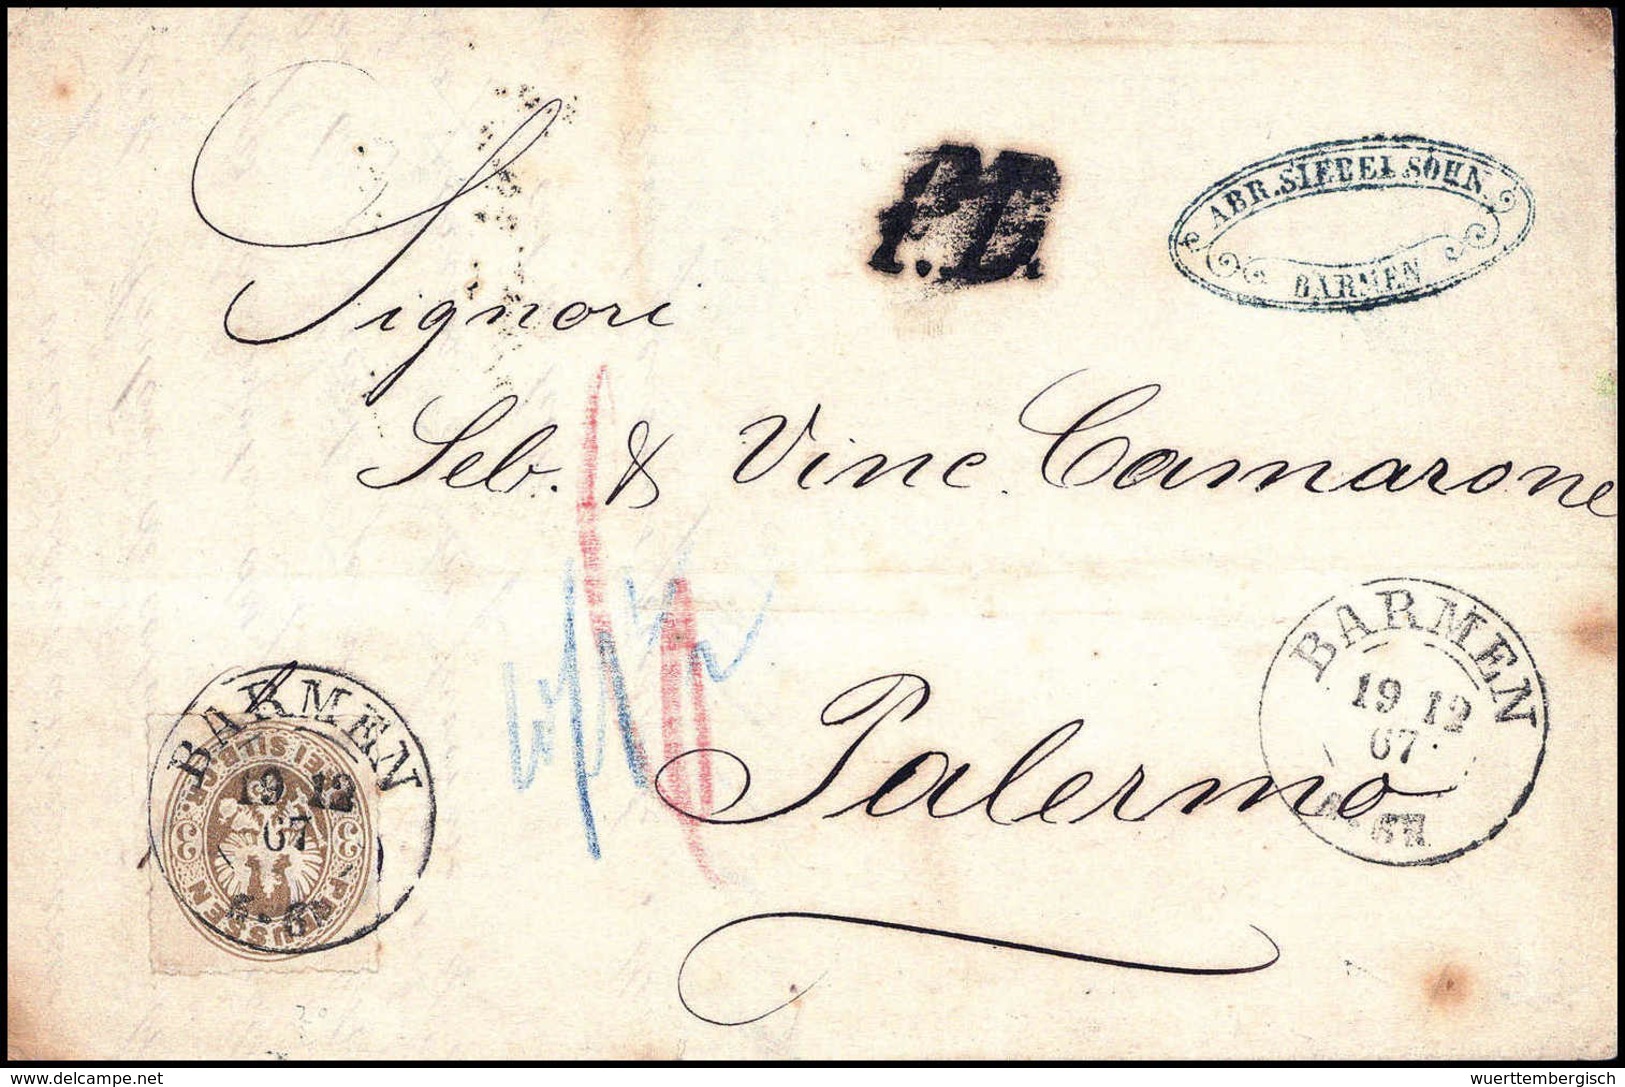 P.D.
ABR. SIEBEL SOHN.
BARMEN
Signori
Seb. & Vinc. Camarone
Palermo
BARMEN
19 12
67
BARMEN
19 12
67
PREUSSEN
3
3
delcampe.net
wuerttembergisch